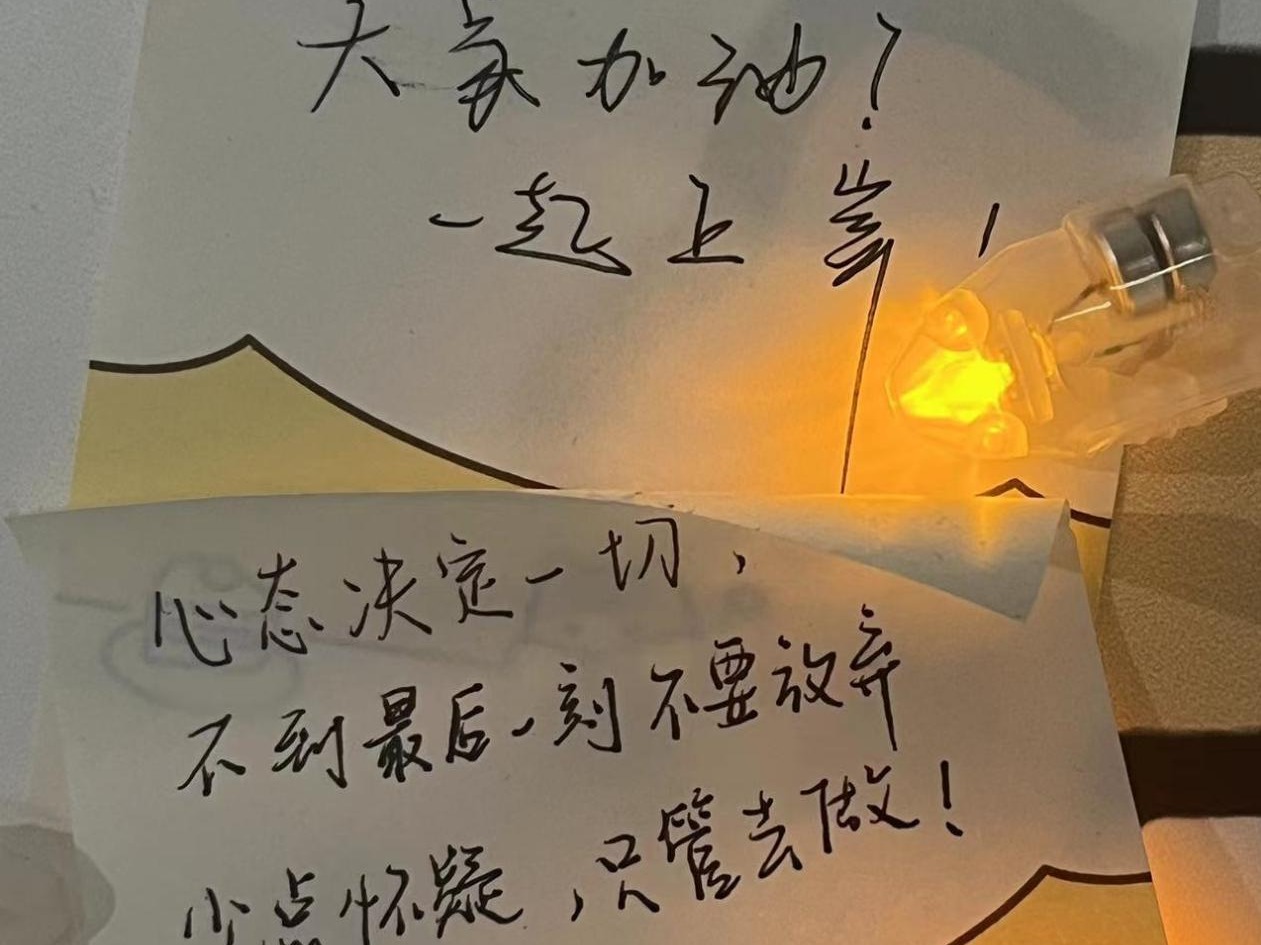 大家加油?
一起上岸!
心态决定一切,
不到最后一刻不要放弃
少点怀疑,只管去做!